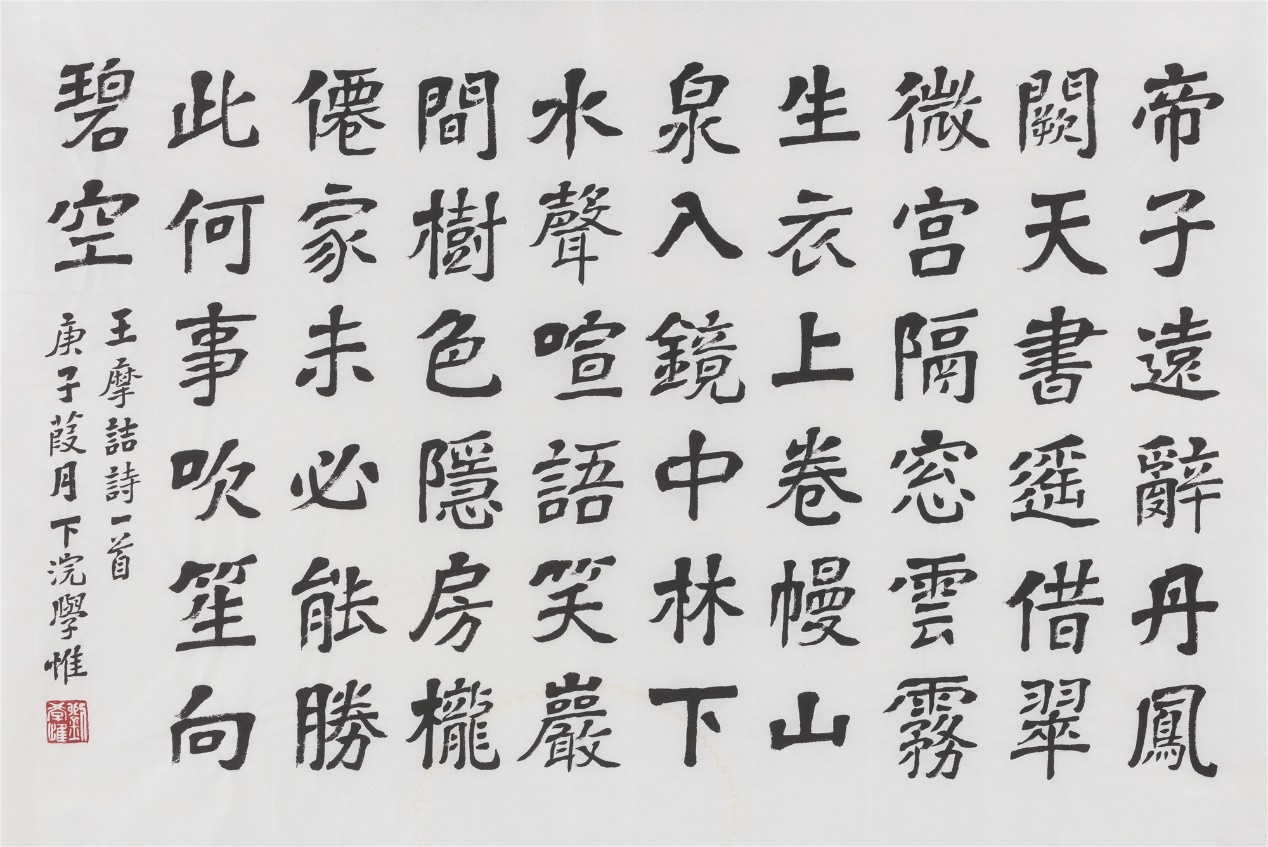 帝子遠辭丹鳳
闕天書遥借翠
微宫隔窓雲霧
生衣上卷幔山
泉入鏡中林下
水聲喧語笑巖
間樹色隱房櫳
僊家未必能勝
此何事吹笙向
碧空
王摩詰詩一首
庚子葭月下浣學惟
劉學惟